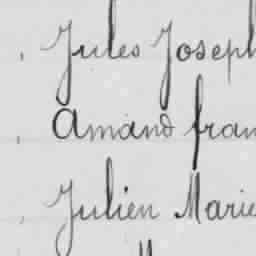 Jules Joseph
Amand fran
Julien Marie